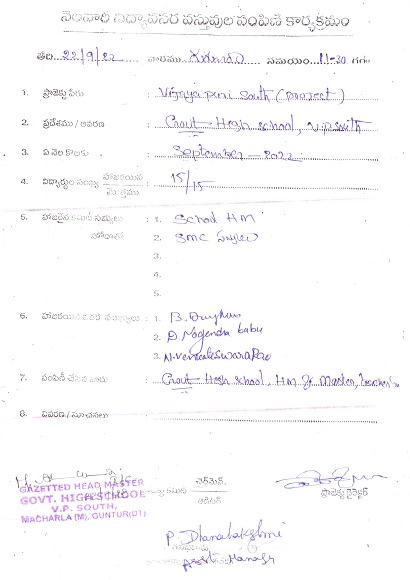 నెలవారీ విద్యావసర వస్తువుల పంపిణీ కార్యక్రమం
తేది. 22/9/22 వారము గురువారం సమయం 11-30 గం॥
1. ప్రాజెక్టు పేరు : Vijaya puri South (project)
2. ప్రదేశము / ఆవరణ : Govt- High school, V.P. South
3. ఏ నెల కొఱకు : September - 2022
4. విద్యార్థుల సంఖ్య హాజరయిన / మొత్తము : 15/15
5. హాజరైన కమిటీ సభ్యులు : 1. School HM
హోదాతో 2. SMC
3.
4.
5.
6. హాజరయిన : 1. B.
2. D. Nagendra babu
3. N. Venkateswara Rao
7. పంపిణీ చేసిన వారు : Govt- High school, H.M & Master, Teacher
8. వివరణ / సూచనలు :
ఛైర్మెన్ ప్రాజెక్టు డైరెక్టర్
GAZETTED HEAD MASTER
GOVT. HIGH SCHOOL
V.P. SOUTH,
MACHARLA (M), GUNTUR(DT)
P. Dhanalakshmi